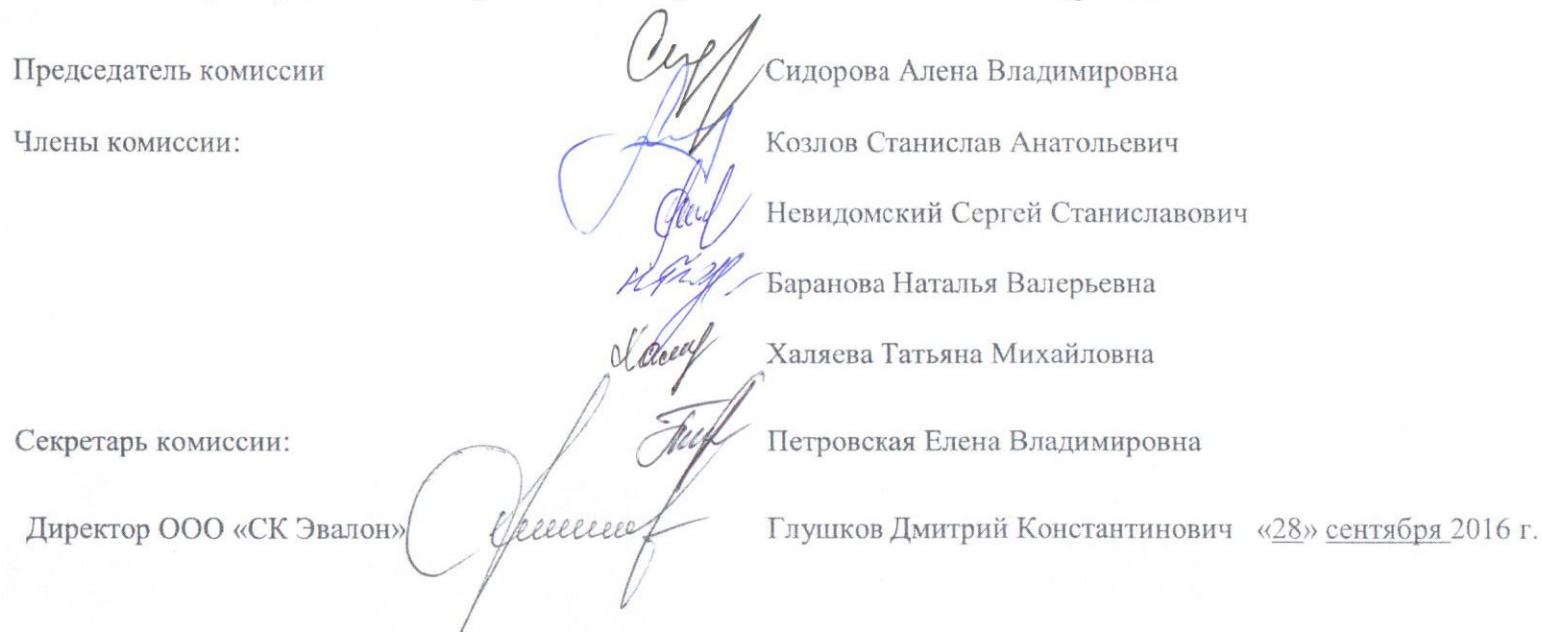 Председатель комиссии Сидорова Алена Владимировна
Члены комиссии: Козлов Станислав Анатольевич
Невидомский Сергей Станиславович
Баранова Наталья Валерьевна
Халяева Татьяна Михайловна
Секретарь комиссии: Петровская Елена Владимировна
Директор ООО «СК Эвалон» Глушков Дмитрий Константинович «28» сентября 2016 г.